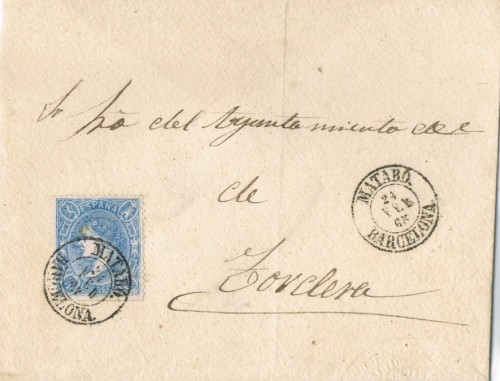 Sr Sño del Ayuntamiento de
de
Tordera
MATARÓ.
24
FEB
65
BARCELONA.
ESPAÑA
MATARÓ.
BARCELONA.